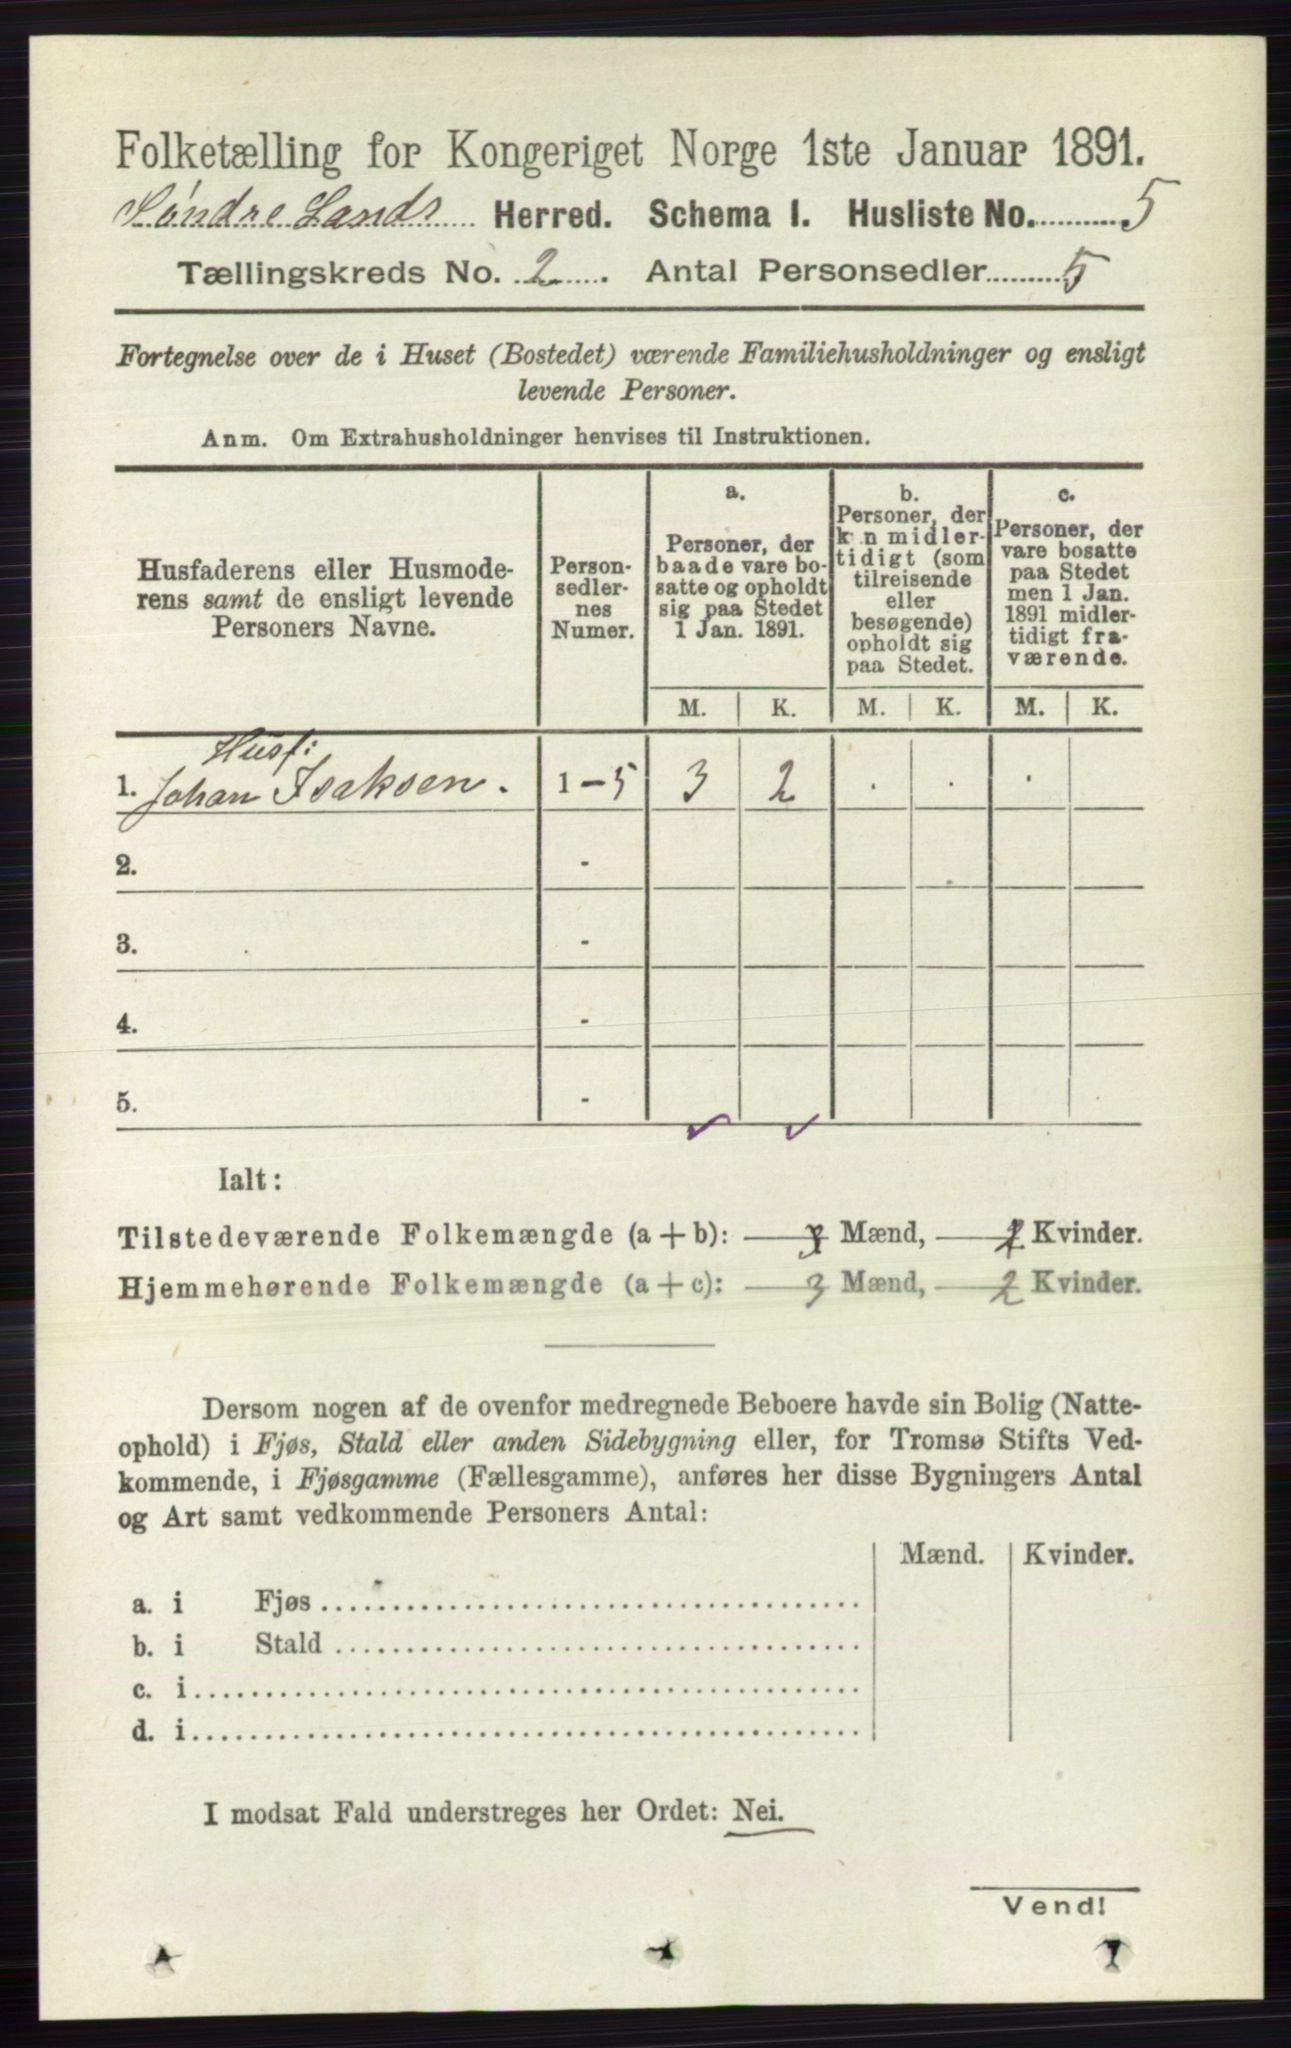 Folketælling for Kongeriget Norge 1ste Januar 1891.
Søndre Lands Herred. Schema I. Husliste No. 5
Tællingskreds No. 2. Antal Personsedler 5
Fortegnelse over de i Huset (Bostedet) værende Familiehusholdninger og ensligt
levende Personer.
Anm. Om Extrahusholdninger henvises til Instruktionen.
Husfaderens eller Husmode-
rens samt de ensligt levende
Personers Navne.
Person-
sedler-
nes
Numer.
a.
Personer, der
baade vare bo-
satte og opholdt
sig paa Stedet
1 Jan. 1891.
b.
Personer, der
kun midler-
tidigt (som
tilreisende
eller
besøgende)
opholdt sig
paa Stedet.
c.
Personer, der
vare bosatte
paa Stedet
men 1 Jan.
1891 midler-
tidigt fra-
værende.
M. K. M. K. M. K.
Husf:
1. Johan Isaksen. 1-5 3 2 . . .
2. -
3. -
4. -
5. -
Ialt:
Tilstedeværende Folkemængde (a+b): — 3 Mænd, — 2 Kvinder.
Hjemmehørende Folkemængde (a+c): — 3 Mænd, — 2 Kvinder.
Dersom nogen af de ovenfor medregnede Beboere havde sin Bolig (Natte-
ophold) i Fjøs, Stald eller anden Sidebygning eller, for Tromsø Stifts Ved-
kommende, i Fjøsgamme (Fællesgamme), anføres her disse Bygningers Antal
og Art samt vedkommende Personers Antal:
Mænd. Kvinder.
a. i Fjøs
b. i Stald
c. i
d. i
I modsat Fald understreges her Ordet: Nei.
Vend!